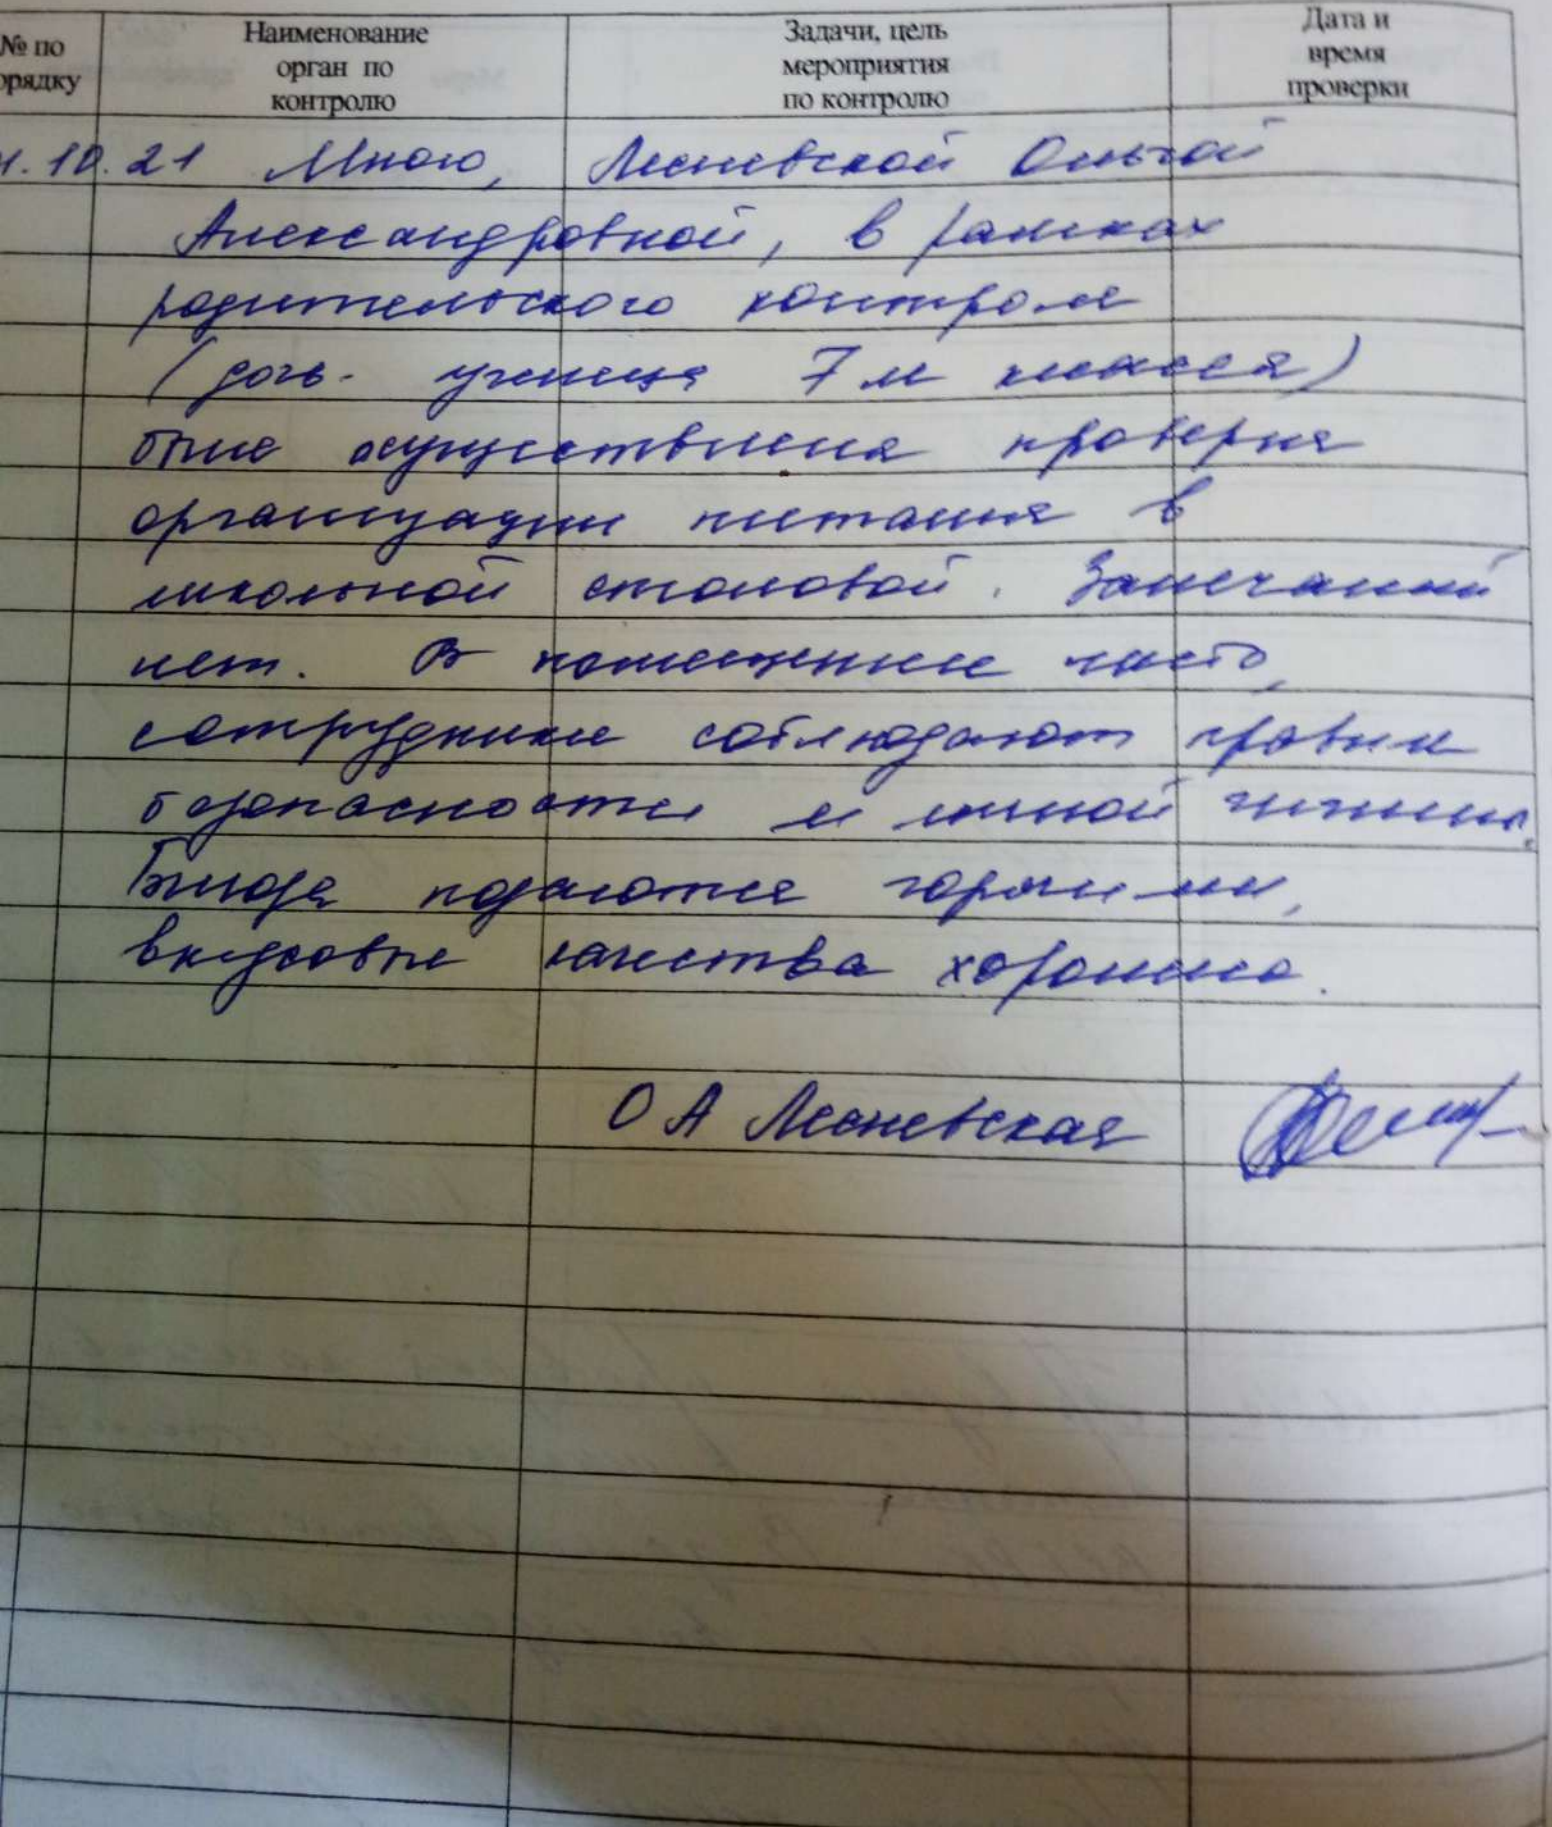 № по
орядку
Наименование
орган по
контролю
Задачи, цель
мероприятия
по контролю
Дата и
время
проверки
.10.21 Мною, Лесневской Ольгой
Александровной, в рамках
родительского контроля
(дочь - ученица 7 м класса)
была осуществлена проверка
организации питания в
школьной столовой. Замечаний
нет. В помещении чисто,
сотрудники соблюдают правила
безопасности и личной гигиены.
Блюда подаются горячими,
вкусовые качества хорошие.
О А Лесневская